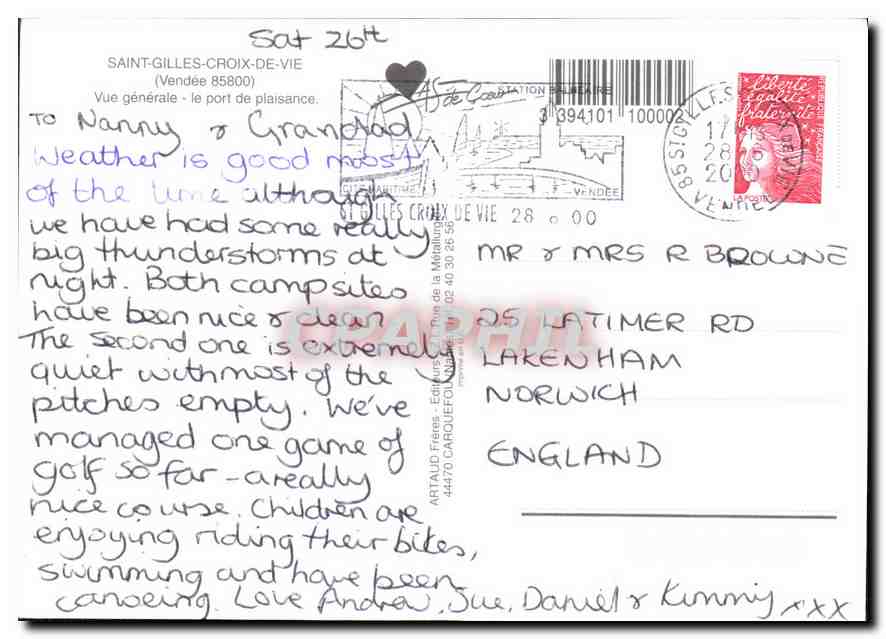 Sat 26th
SAINT-GILLES-CROIX-DE-VIE
(Vendée 85800)
Vue générale - le port de plaisance.
To Nanny & Grandad
Weather is good most
of the time although
we have had some really
big thunderstorms at
night. Both campsites
have been nice & clean
The second one is extremely
quiet with most of the
pitches empty. We've
managed one game of
golf so far - a really
nice course. Children are
enjoying riding their bikes,
swimming and have been
canoeing. Love Andrew, Sue, Daniel & Kimmy xxx
STATION BALNEAIRE
CITE MARITIME
VENDÉE
ST GILLES CROIX DE VIE 28 6 00
3 394101 100002
85 ST GILLES
17
28
20
VENDEE
liberté
égalité
fraternité
RÉPUBLIQUE FRANÇAISE
LA POSTE
ARTAUD Frères - Editeurs Rue de la Métallurgie
44470 CARQUEFOU 02 40 30 26 56
MR & MRS R BROWNE
25 LATIMER RD
LAKENHAM
NORWICH
ENGLAND
CPAPHIL